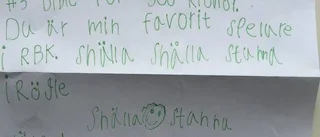 Du är min favorit spelare
i RBK. snälla snålla stanna
i Rögle
snälla stanna